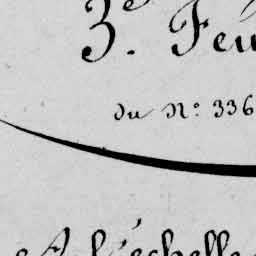 3.e Feu
du N.o 336
A l'échelle